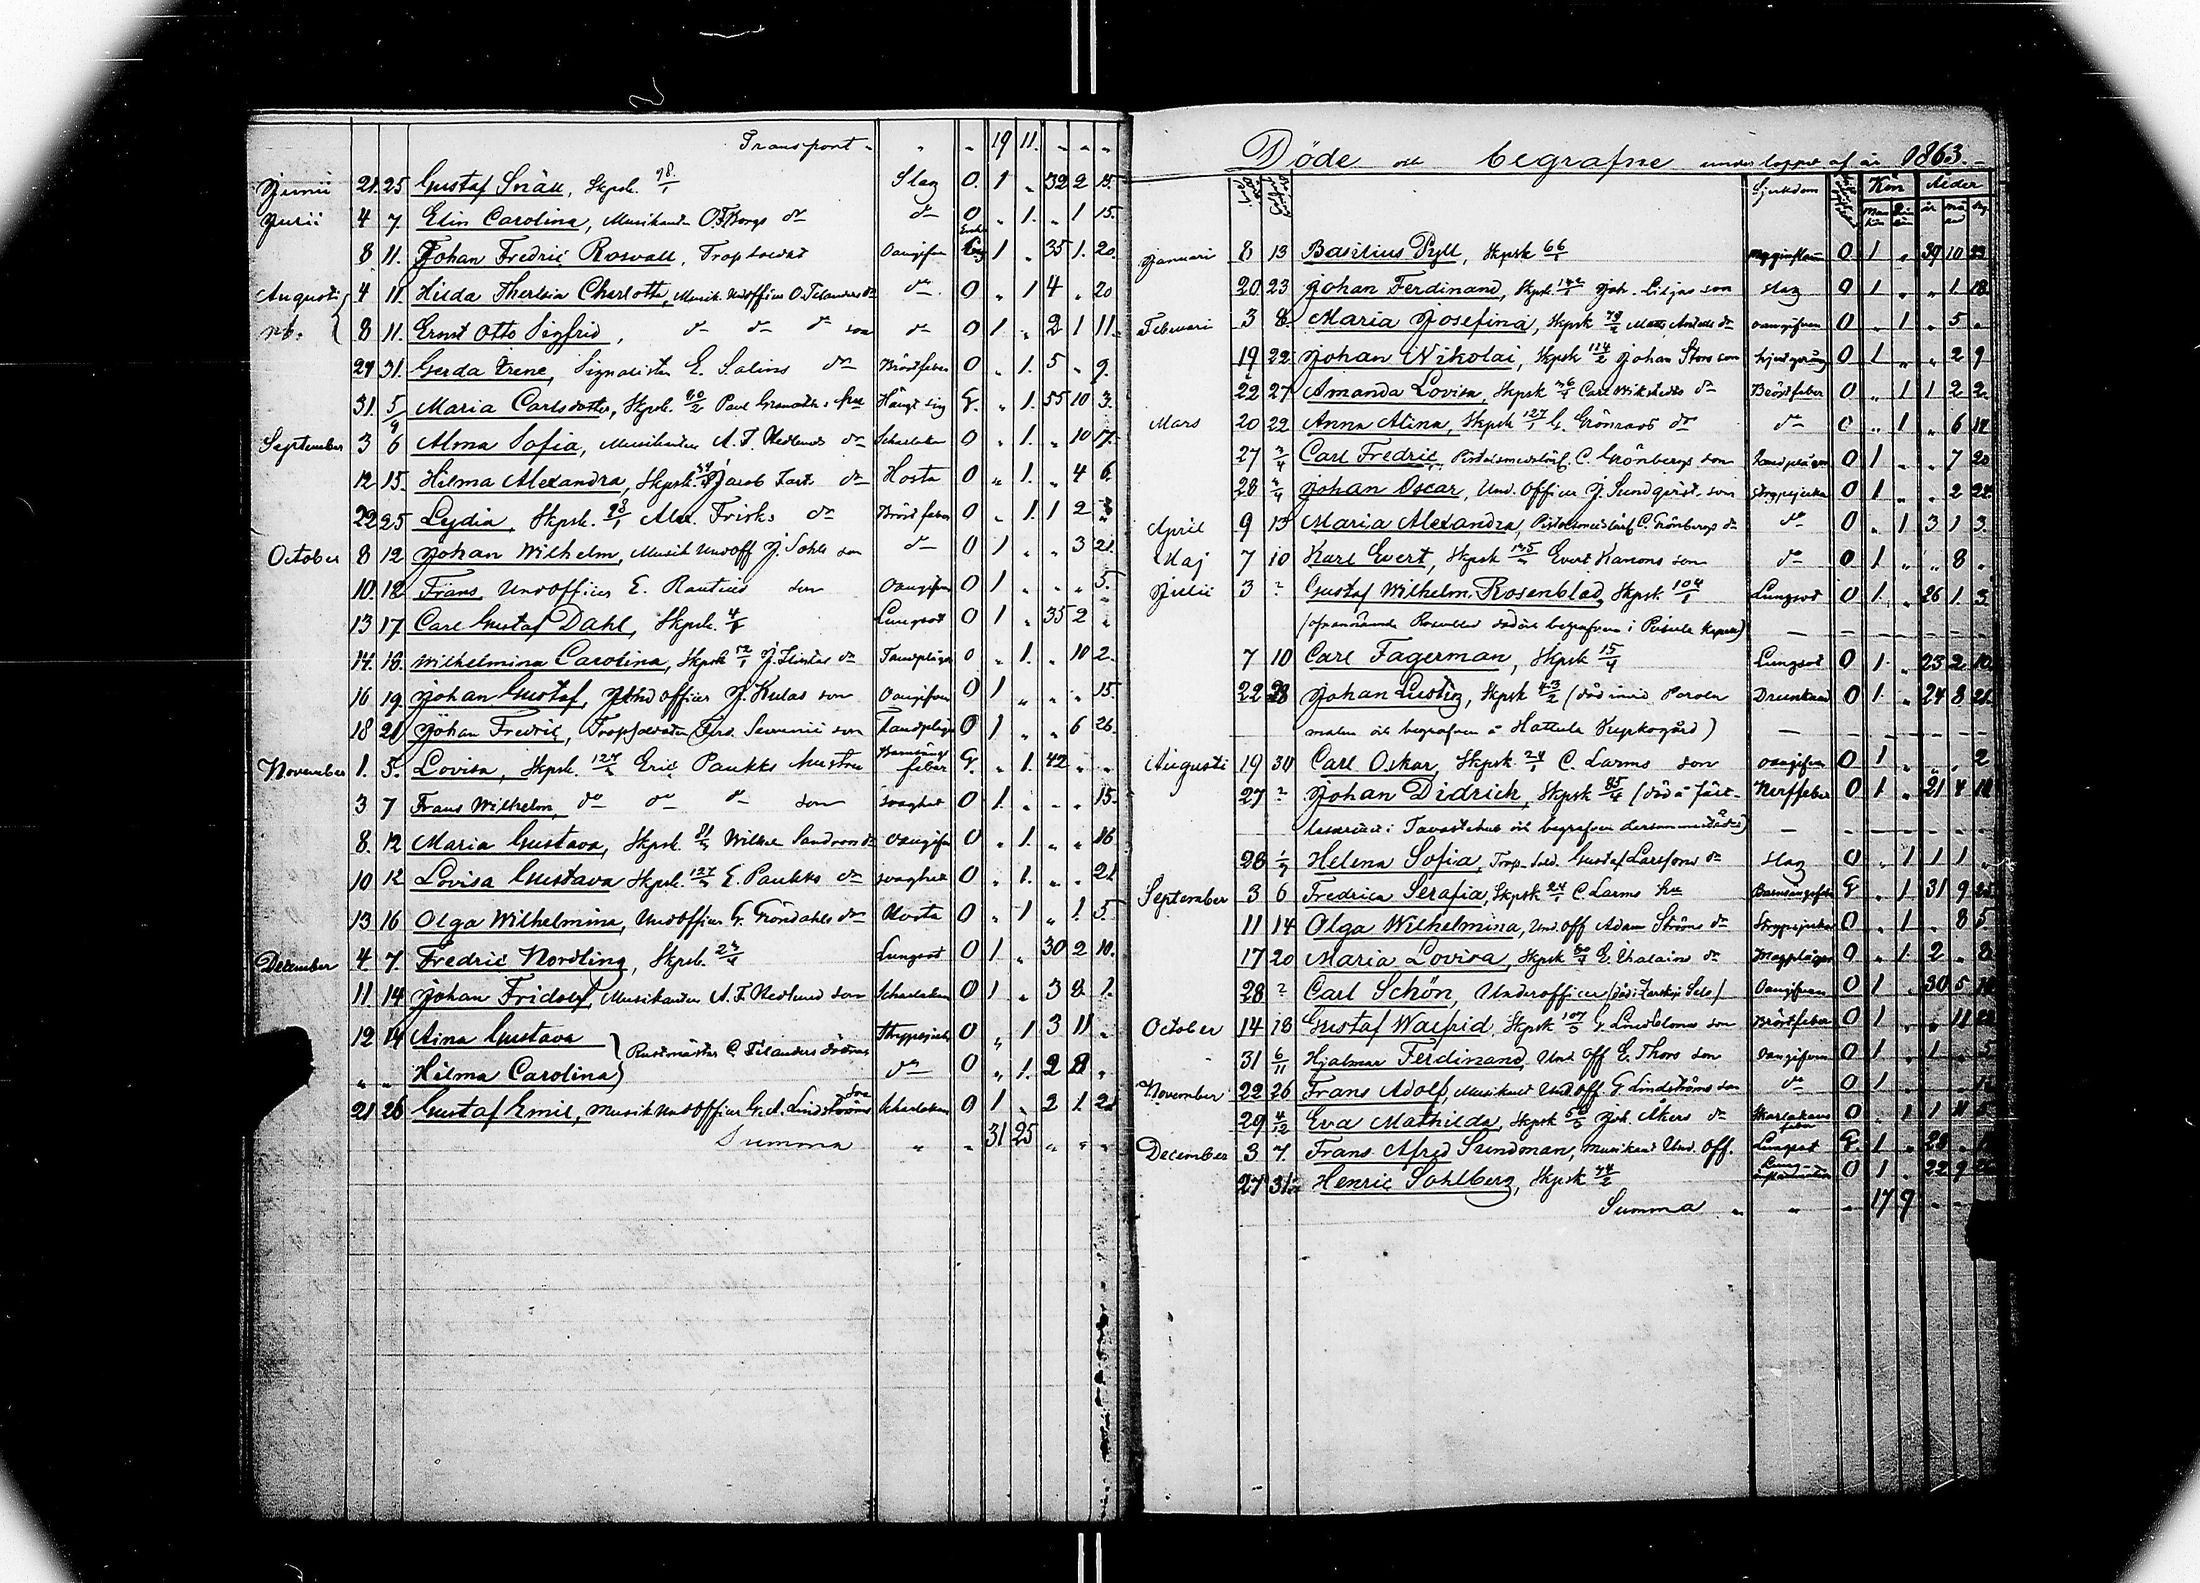 Transport - " " 19 11. " " "
Junii 21. 25 Gustaf Snäll, Skpsk. 98/1 Slag O. 1 " 32 2 15.
Julii 4 7. Elin Carolina, Musikanten O. F. Borgs dr do O " 1. " 1 15.
8 11. Johan Fredric Rosvall, Tropsoldat Oangifven Enkling 1 " 35 1. 20.
Augusti 4 11. Hilda Theresia Charlotta, Musik. Undofficer O. Telanders dr do O " 1 4 " 20
nb. 8 11. Ernst Otto Sigfrid, do do do son do O 1 " 2 1 11.
29 31. Gerda Irene, Signalisten E. Salins dr Bröstfeber O " 1. 5 " 9.
31. 5/9 Maria Carlsdotter, Skpsk. 80/2 Paul hu Hängt sig G. " 1. 55 10 3.
September 3 6 Alma Sofia, Musikanten A. F. Hedlunds dr Scharlakan O " 1. " 10 17.
12 15. Hilma Alexandra, Skpsk. Jacob dr Hosta O " 1. " 4 6.
22 25 Lydia, Skpsk. 98/1 Alex. Frisks dr Bröstfeber O " 1. 1 2
October 8 12 Johan Wilhelm, Musik Undoff J. Sohls son do O 1 " " 3 21.
10. 12 Frans, Undofficer E. Rautius son Oangifven O 1 " " " 5.
13 17. Carl Gustaf Dahl, Skpsk. Lungsot O 1 " 35 2 "
14. 16. Wilhelmina Carolina, Skpsk J. dr Tandplågor O " 1. " 10 2.
16 19. Johan Gustaf, Undofficer J. Kulas son Oangifven O 1 " " " 15.
18 21 Johan Fredric, Tropsoldaten Ferd. son Tandplågor O 1 " " 6 26.
November 1. 5. Lovisa, Skpsk. 127/2 Eric Paukks hustru Barnsängs feber G. " 1. 42 " "
3 7 Frans Wilhelm, do do do son svaghet O 1. " " " 15.
8. 12 Maria Gustava, Skpsk. Wilhelm Sandroos dr Oangifven O " 1. " " 16
10 12 Lovisa Gustava Skpsk. E. Paukks dr svaghet O " 1. " " 21
13 16 Olga Wilhelmina, Undofficer G. Gröndahls dr Hosta O " 1 " 1. 5
December 4 7. Fredric Nordling, Skpsk. Lungsot O 1 " 30 2 10.
11 14 Johan Fridolf, Musikanten A. F. Hedlund son Scharlakan O 1 " 3 8 1.
12 14 Aina Gustava Strypsjuka O " 1 3 11 "
Rustmästar C. Telanders döttrar
" " Hilma Carolina do O " 1. 2 8 "
21 26 Gustaf Emil, Musik Undofficer G. A. Lindströms son Scharlakan O 1 " 2 1. 21
Summa " " 31 25 " " "
Döde och begrafne under loppet af år 1863. -
Sjukdom Kön Ålder
Man kön Qvin kön år må nad dag
Januari 8 13 Basilius Pyll, Skpsk 66/1 O 1 " 39 10 23
20 23 Johan Ferdinand, Skpsk. Joh. Liljas son slag O 1 " " 1. 18
Februari 3 8. Maria Josefina, Skpsk Matts dr oangifven O " 1 " 5 "
19 22. Johan Nikolai, Skpsk 114/2 Johan Stors son O 1 " " 2 9
22 27 Amanda Lovisa, Skpsk Carl Wikstedts dr Bröstfeber O " 1 1 2 2.
Mars 20 22 Anna Alina, Skpsk 127/1 G. Grönroos dr do O " 1 " 6 14
27 Carl Fredric, C. Grönbergs son Tandplågor O 1 " " 7 20
28 Johan Oscar, Und. Officer J. Sundqvist son strypsjuka O 1 " " 2 22
April 9 13 Maria Alexandra, C. Grönbergs dr do O " 1 3 1 3.
Maj 7 10 Karl Evert, Skpsk Evert Kanons son do O 1 " " 8 "
Julii 3 ? Gustaf Wilhelm Rosenblad, Skpsk. 104/1 Lungsot O 1. " 26 1. 3.
(ofvannämnde Rosenblad död och begrafven i Kapell)
7 10 Carl Fagerman, Skpsk 15/4 Lungsot O 1. " 23 2. 10
22 28 Johan Lustig, Skpsk 43/2 (död invid Parola Drunknad O 1. " 24 8 21.
malm och begrafven å Hattula Kyrkogård)
Augusti 19 30 Carl Oskar, Skpsk 24/1 C. Larms son oangifven O 1 " " " 2
27 ? Johan Didrich, Skpsk 85/4 (död å fält- Nerffeber O 1 " 21 4 18
lasarettet i Tavastehus och begrafven dersammastädes)
28 1/9 Helena Sofia, Trop. Sold. Gustaf Larssons dr slag O " 1 1 1 "
September 3 6 Fredrica Serafia, Skpsk 24/1 C. Larms hu Barnsängsfeber G. " 1. 31 9 25
11 14 Olga Wilhelmina, Und. off Adam Ströms dr Strypsjuka O " 1. " 8 5.
17 20 Maria Lovisa, Skpsk E. dr Magplågor O " 1. 2 " 8
28 ? Carl Schön, Underofficer (död i Zarskoje Selo) Oangifven O 1 " 30 5 10
October 14 18 Gustaf Walfrid, Skpsk 107/5 G. Lindbloms son Bröstfeber O 1 " " 11 22
31 6/11 Hjalmar Ferdinand, Und. off E. Thors son Oangifven O 1 " 1 " 5
November 22 26 Frans Adolf, Musikant Und. off. G. Lindströms son do O 1 " " " 12
29 4/12 Eva Mathilda, Skpsk Joh. Åkers dr Skarlakans feber O " 1 1 11
December 3 7. Frans Alfred Sundman, Musikant Und. Off. Lungsot G. 1 " 28 "
27 31/12 Henric Sohlberg, Skpsk O 1 " 22 9
Summa " " " 17 9 " "